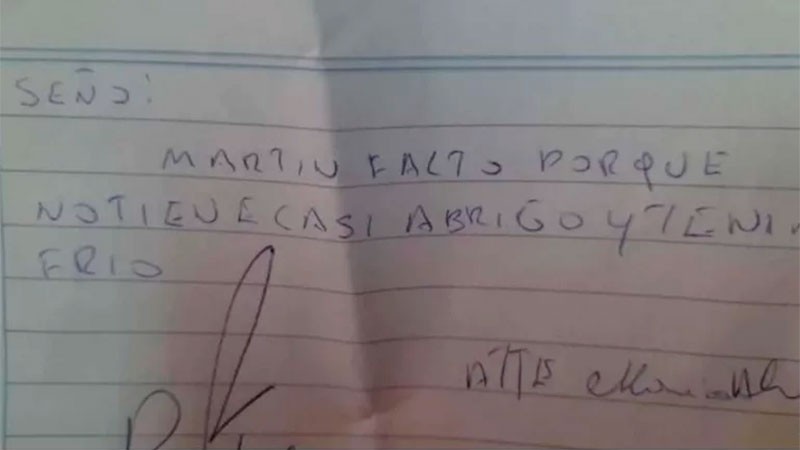 SEÑO:
MARTIN FALTO PORQUE
NO TIENE CASI ABRIGO Y TENI
FRIO
ATTE